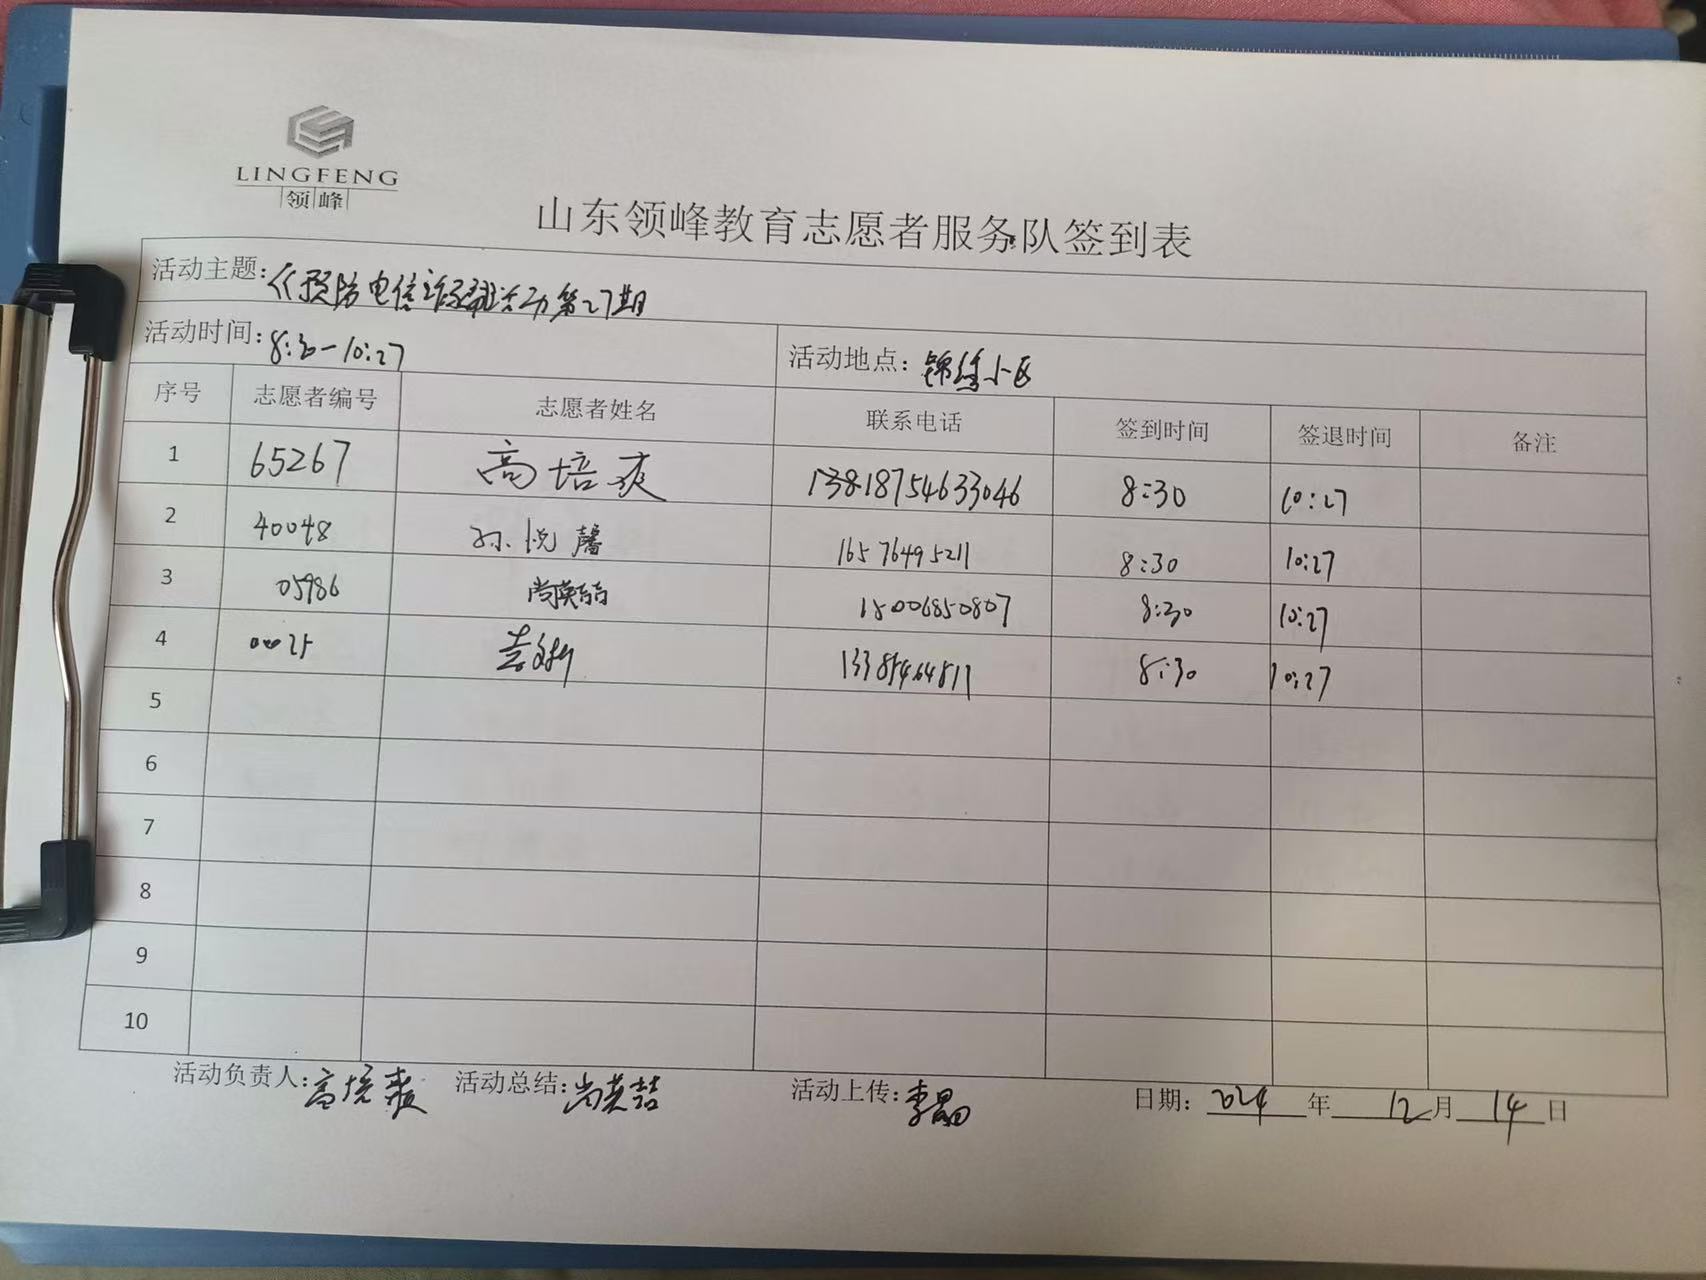 LINGFENG
领峰
山东领峰教育志愿者服务队签到表
活动主题:《预防电信诈骗》活动第27期
活动时间:8:30-10:27 活动地点:锦绣小区
序号 志愿者编号 志愿者姓名 联系电话 签到时间 签退时间 备注
1 65267 高培爽 13818754633046 8:30 10:27
2 40048 孙悦馨 16576495211 8:30 10:27
3 05986 尚英喆 15006850807 8:30 10:27
4 8:30 10:27
5
6
7
8
9
10
活动负责人:高培爽 活动总结:尚英喆 活动上传:李晶 日期:2024年12月14日